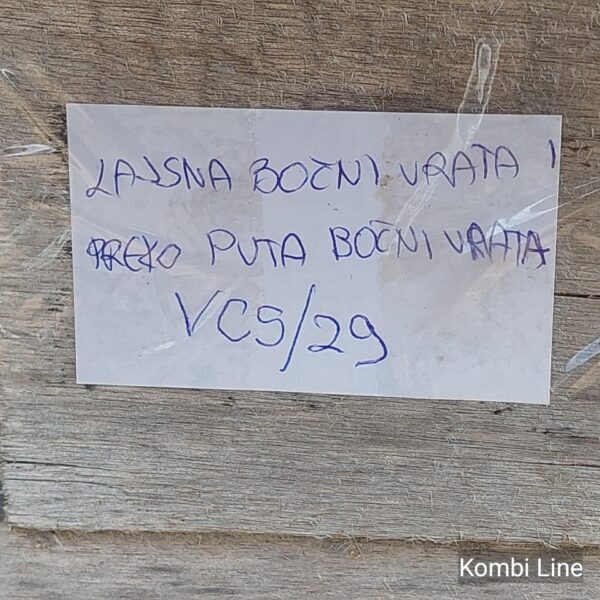 LAJSNA BOČNI VRATA I
PREKO PUTA BOČNI VRATA
VCS/29
Kombi Line